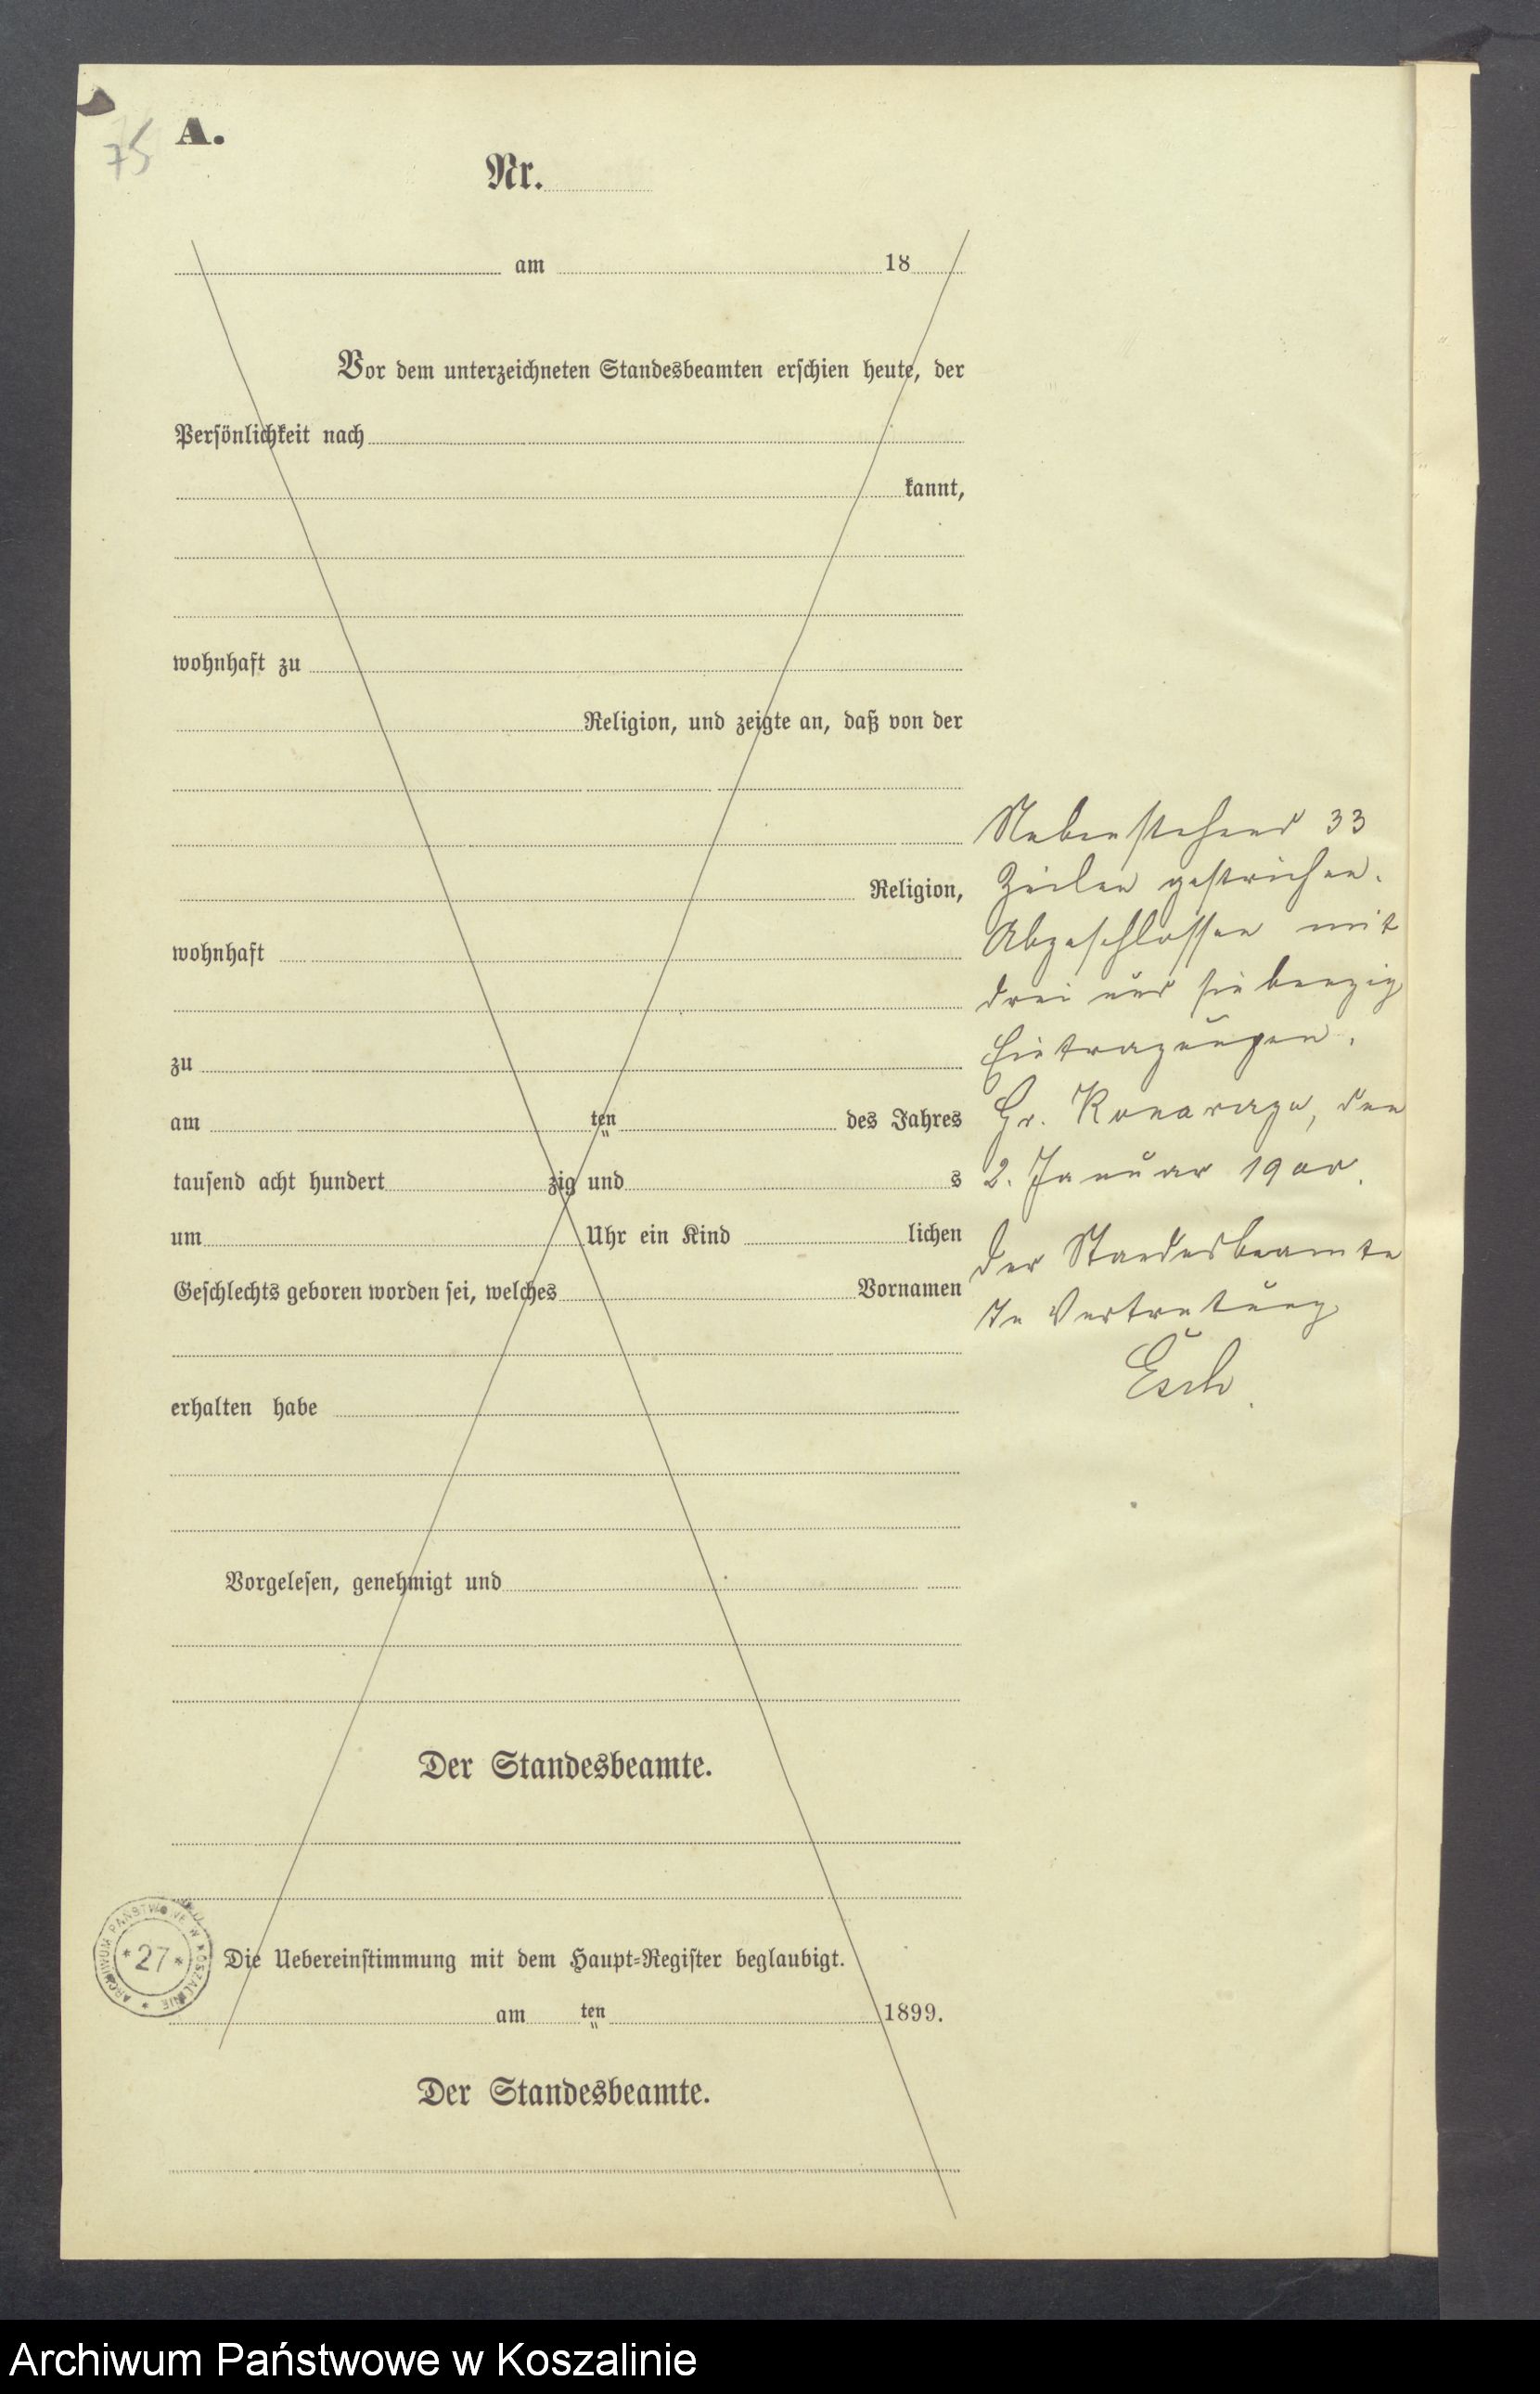 75
A.
Nr.
am 18
Vor dem unterzeichneten Standesbeamten erschien heute, der
Persönlichkeit nach
kannt,
wohnhaft zu
Religion, und zeigte an, daß von der
Religion,
wohnhaft
zu
am ten des Jahres
tausend acht hundert zig und s
um Uhr ein Kind lichen
Geschlechts geboren worden sei, welches Vornamen
erhalten habe
Vorgelesen, genehmigt und
Der Standesbeamte.
Die Uebereinstimmung mit dem Haupt-Register beglaubigt.
am ten 1899.
Der Standesbeamte.
Nebenstehend 33
Zeilen gestrichen.
Abgeschlossen mit
drei und siebenzig
Eintragungen.
Gr. Konarczyn, den
2. Januar 1900.
Der Standesbeamte
In Vertretung
Esch.
ARCHIWUM PAŃSTWOWE W KOSZALINIE
* 27 *
Archiwum Państwowe w Koszalinie